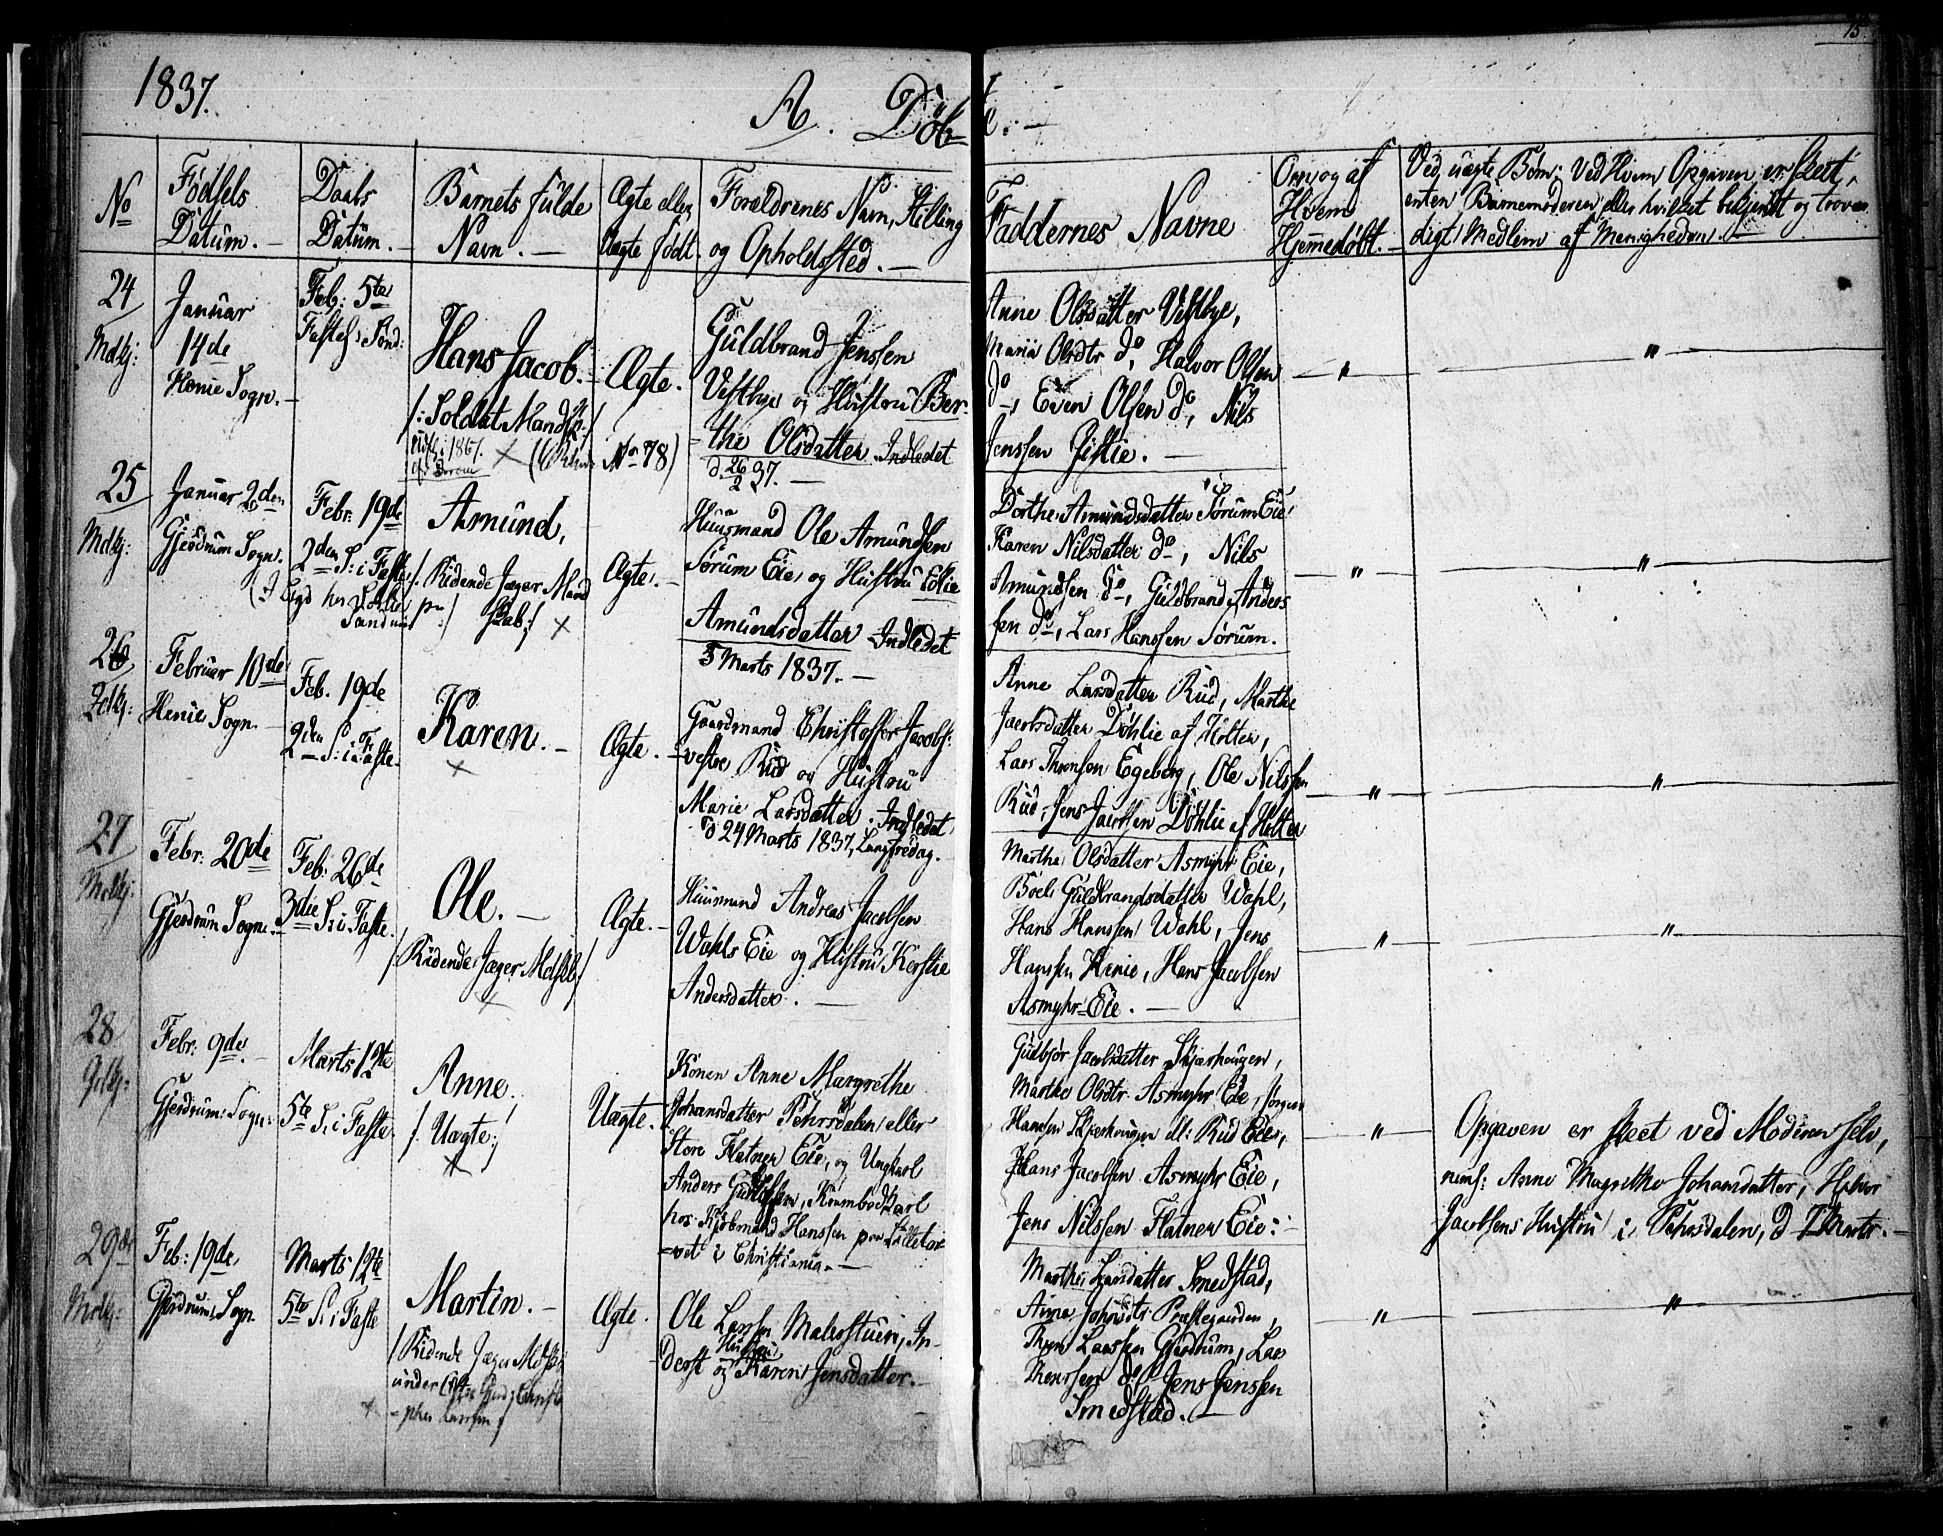 15.
1837.
A. Döb-
te. —
No
Födsels
Datum. —
Daabs
Datum. —
Barnets fulde
Navn. —
Ægte eller
Uægte födt.
Forældrenes Navn, Stilling
og Opholdssted. —
Faddernes Navne
Om og af
Hvem
Hjemmedöbt. —
Ved uægte Börn: Ved Hvem Opgaven er skeet,
enten Barnemoderen eller hvilket bekjendt og trovær
digt Medlem af Menigheden. —
24
Mdkj:
Januar
14de
Henie Sogn. —
Feb: 5te
Fastel: Sönd:
Hans Jacob. —
/: Soldat Mandsk: /
No 78)
Ægte.
Guldbrand Jenssen
Vestbye og Hustru Ber-
the Olsdatter. Indledet
d 26/2 37. —
Anne Olsdatter Vestbye,
Maria Olsdtr do, Halvor Olsen
do, Even Olsen do, Nils
Jenssen Gistie. —
— " —
— " —
25
Mdkj:
Januar 2den
Gjerdrum Sogn.
Febr. 19de
2den S: i Faste
Amund,
/: Ridende Jæger Mand
skab: / x
Ægte. —
Huusmand Ole Amundsen
Sörum Eie og Hustru Eslie
Amundsdatter Indledet
5 Marts 1837. —
Dorthe Amundsdatter Sörum Eie,
Karen Nilsdatter do, Nils
Amundsen do, Guldbrand Anders
sen do, Lars Hanssen Sörum.
— " —
— " —
26
Qdkj:
Februar 10de
Henie Sogn. —
Feb. 19de
2den S: i Faste.
Karen. —
x
Ægte. —
Gaardmand Christoffer Jacobs:
vestre Rud og Hustru
Marie Larsdatter. Indledet
d 24 Marts 1837, Langfredag.
Anne Larsdatter Rud, Marthe
Jacobsdatter Döhlie af Holter,
Lars Thorssen Egeberg, Ole Nilssen
Rud, Jens Jacobsen Döhlie af Holter
— " —
— " —
27
Mdkj:
Febr: 20de
Gjerdrum Sogn. —
Feb: 26de
3die S: i Faste.
Ole. —
/: Ridende Jæger Mdskb: /
x
Ægte. —
Huusmand Andreas Jacobsen
Wahls Eie og Hustru Kerstie
Andersdatter. —
Marthe Olsdatter Asmyhr Eie,
Boel Guldbrandsdatter Wahl,
Hans Hanssen Wahl, Jens
Hanssen Henie, Hans Jacobsen
Asmyhr-Eie. —
— " —
— " —
28
Qdkj:
Febr: 9de. —
Gjerdrum Sogn:
Marts 12te
5te S: i Faste.
Anne.
/: Uægte: /
x
Uægte. —
Konen Anne Margrethe
Johansdatter Pehrsdalen eller
Store Flatner Eie, og Ungkarl
Anders Krambodkarl
hos Kjöbmand Hanssen paa Lilletor-
=vet i Christiania. —
Gudbjör Jacobsdatter Skjærhougen,
Marthe Olsdtr Asmyhr Eie, Jörgen
Hanssen Skjærhougen ell: Rud Eie,
Hans Jacobsen Asmyhr Eie,
Jens Nilssen Flatner Eie: —
— " —
Opgaven er skeet ved Moderen selv,
neml: Anne Magrethe Johansdatter, Halvor
Jacobsens Hustru i Pehrsdalen, d 7 Marts. —
29de
Mdkj:
Feb: 19de,
Gjerdrum Sogn.
Marts 12te
5te S: i Faste
Martin. —
/: Ridende Jæger Mdsk:
under
Ægte.
Ole Larssen Malerstuen, In-
derst og Hustru Karen Jensdatter. —
Marthe Larsdatter Smedstad,
Anne Johnsdtr Præstegaarden,
Thor Larssen Gjerdrum, Lars
Thorssen do, Jens Jenssen
Smedstad. —
— " —
— " —